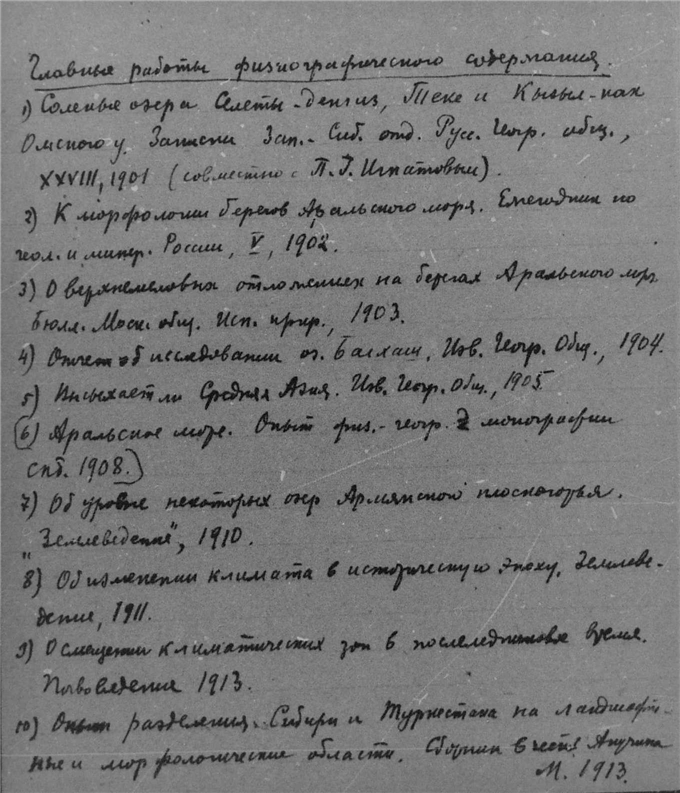 Главные работы физиографического содержания.
1) Соленые озера Селеты-Денгиз, Теке и Кызыл-как
Омского у. Записки Зап.-Сиб. отд. Русс. Геогр. общ.,
XXVIII, 1901 (совместно с П. Г. Игнатовым).
2) К морфологии берегов Аральского моря. Ежегодник по
геол. и минер. России, V, 1902.
3) О верхнемеловых отложениях на берегах Аральского моря.
Бюлл. Моск. общ. Исп. прир., 1903.
4) Отчет об исследовании оз. Балхаш. Изв. Геогр. Общ., 1904.
5) Высыхает ли Средняя Азия. Изв. Геогр. Общ., 1905
(6) Аральское море. Опыт физ.-геогр. монографии
СПб. 1908.)
7) Об уровне некоторых озер Армянского плоскогорья.
"Землеведение", 1910.
8) Об изменении климата в историческую эпоху. Землеве-
дение, 1911.
9) О смещении климатических зон в послеледниковое время.
Почвоведение 1913.
10) Опыт разделения Сибири и Туркестана на ландшафт-
ные и морфологические области. Сборник в честь Анучина
М. 1913.